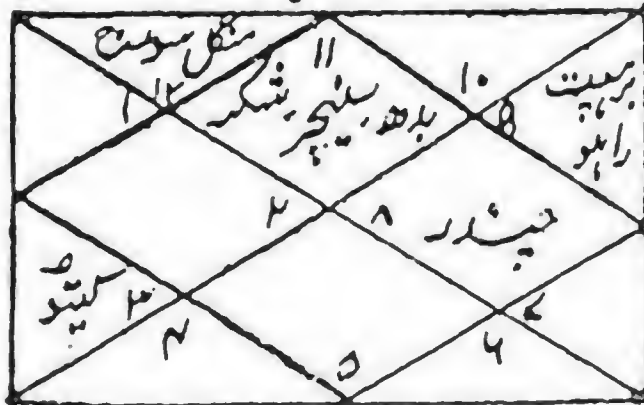 منگل سورج
۱۱
۱۲
۱
بدھ، سنیچر، شکر
۱۰
۹
برہسپت
راہو
۲
۸
چندر
کیتو
۳
۴
۵
۶
۷